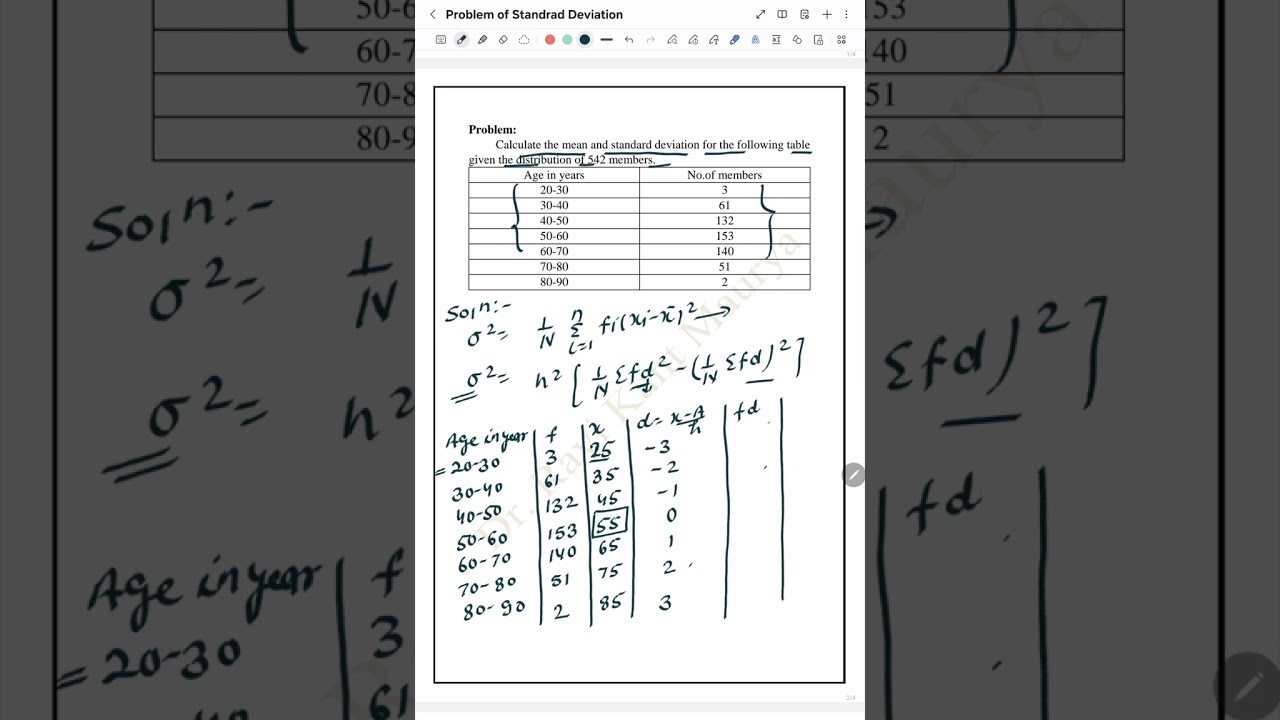 Problem of Standrad Deviation
1/4
Problem:
Calculate the mean and standard deviation for the following table
given the distribution of 542 members.
Age in years No.of members
20-30 3
30-40 61
40-50 132
50-60 153
60-70 140
70-80 51
80-90 2
Soln:-
σ²= 1/N Σ i=1 n fi(xi-x̄)² →
σ²= h² [1/N Σfd² - (1/N Σfd)²]
Age in year f x d= x-A/h fd
=20-30 3 25 -3
30-40 61 35 -2
40-50 132 45 -1
50-60 153 55 0
60-70 140 65 1
70-80 51 75 2
80-90 2 85 3
Dr. Ravi Kant Maurya
2/4
50-6
60-7
70-8
80-9
Soln:-
σ²= 1/N
σ²= h²
Age in year f
=20-30 3
61
53
40
51
2
Maurya
Σfd)²]
fd